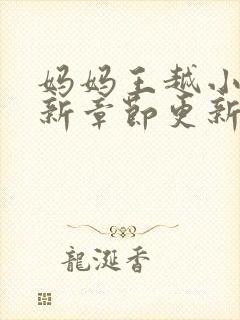 妈妈王越小
新章节更新
龍涎香